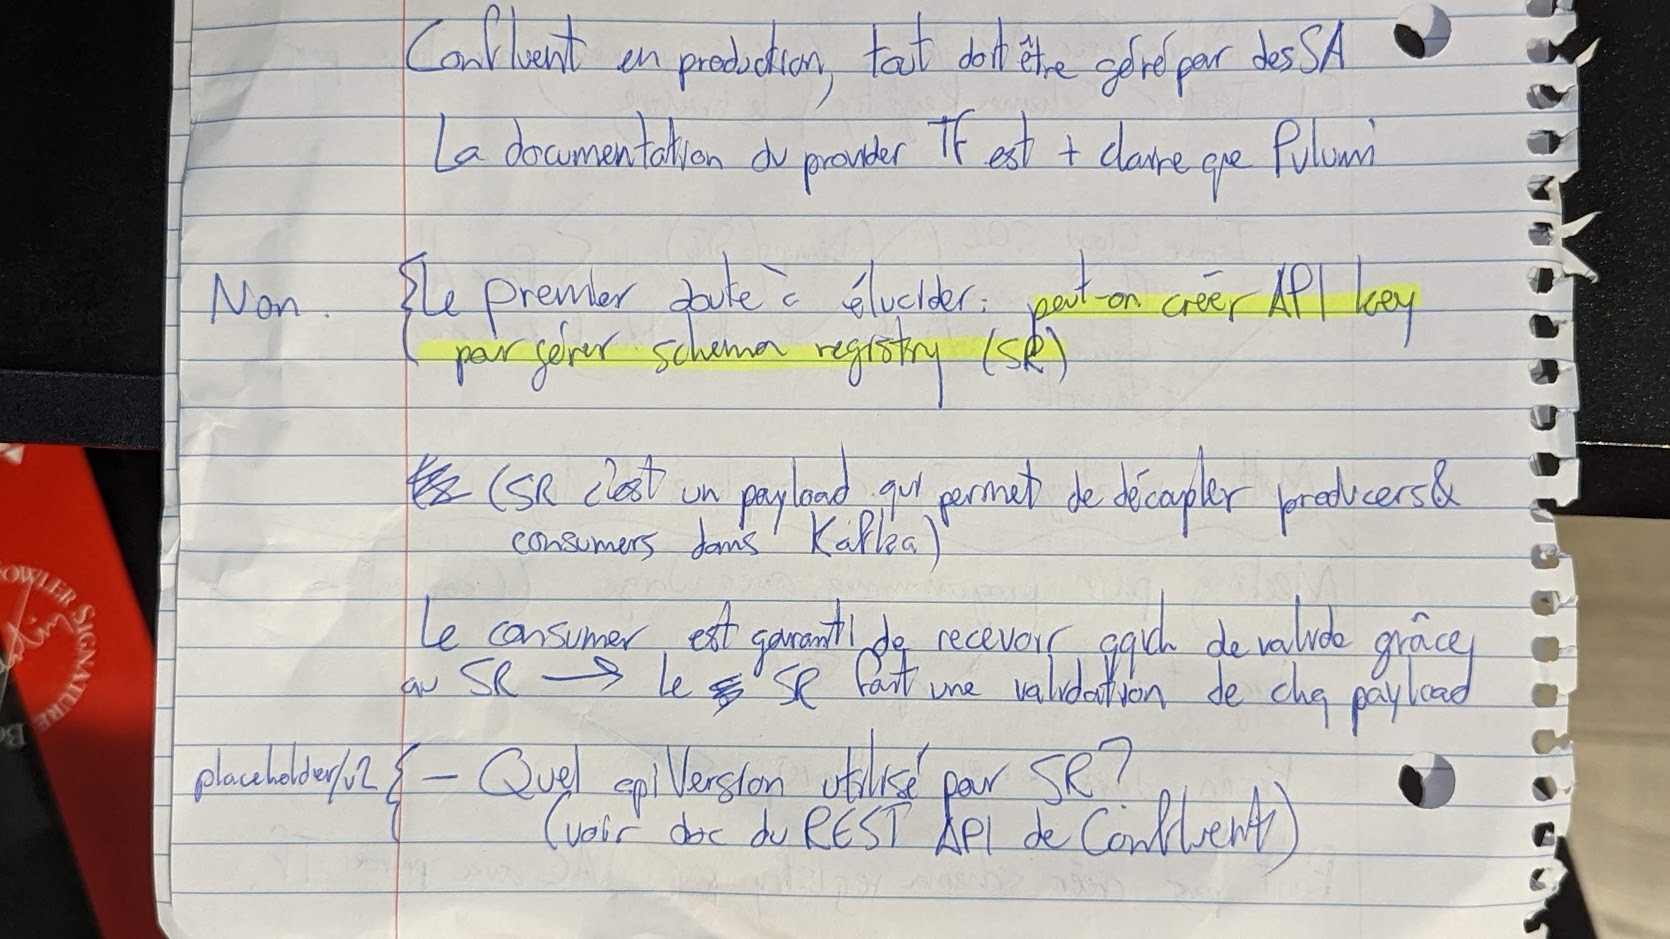 Confluent en production, tout doit être géré par des SA
La documentation du provider TF est + claire que Pulumi
Non. { Le premier doute à élucider: peut-on créer API key
pour gérer schema registry (SR)
(SR c'est un payload qui permet de découpler producers &
consumers dans Kafka)
Le consumer est garanti de recevoir qqch de valide grâce
au SR → Le SR fait une validation de chq payload
placeholder/v2 { - Quel apiVersion utilisé pour SR?
(voir doc du REST API de Confluent)
OWLER SIGNATURE